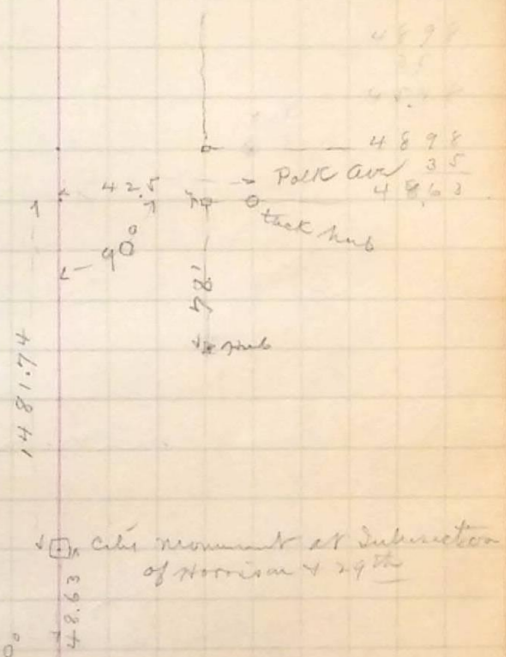 4898
4898
35
48.63
Polk Ave
42.5
tack hub
90°
784
Hub
1481.74
City Monument at Intersection
of Harrison & 29th
48.63